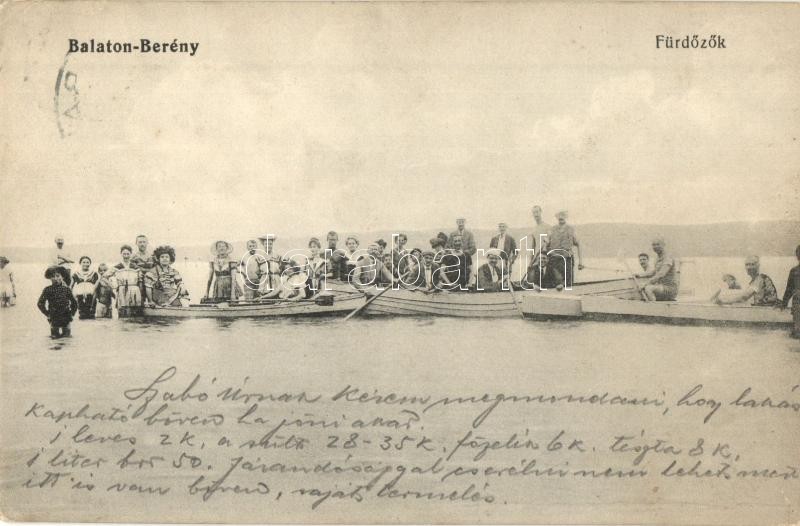 Balaton-Berény
Fürdőzők
darabanth
Szabó Úrnak kérem megmondani, hogy lakás
kapható bőven ha jönni akar.
1 leves 2 k, a sült 28-35 k. főzelék 6 k. tészta 8 k,
1 liter bor 50. Járandósággal cserélni nem lehet, mert
itt is van bőven, saját termelés.